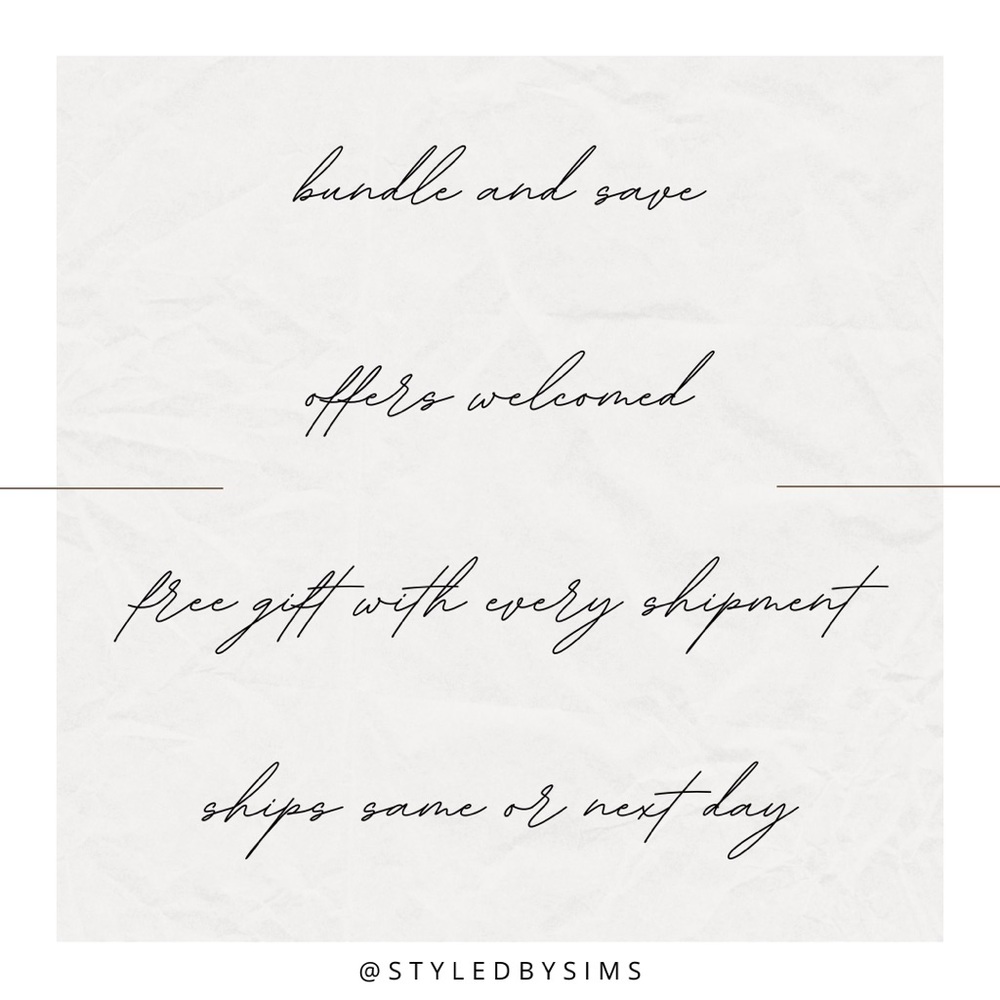 bundle and save
offers welcomed
free gift with every shipment
ships same or next day
@STYLEDBYSIMS